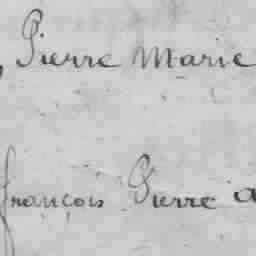 , Pierre Marie
françois Pierre a